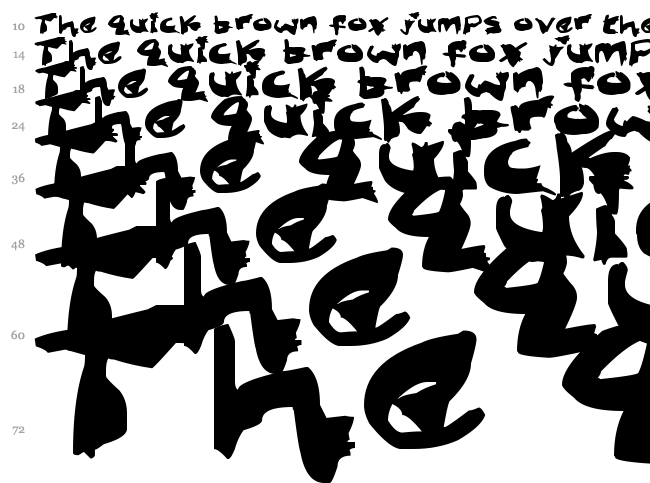 10 The quick brown fox jumps over the
14 The quick brown fox jump
18 The quick brown fox
24 The quick brow
36 The quick
48 The quic
60 The qu
72 The q